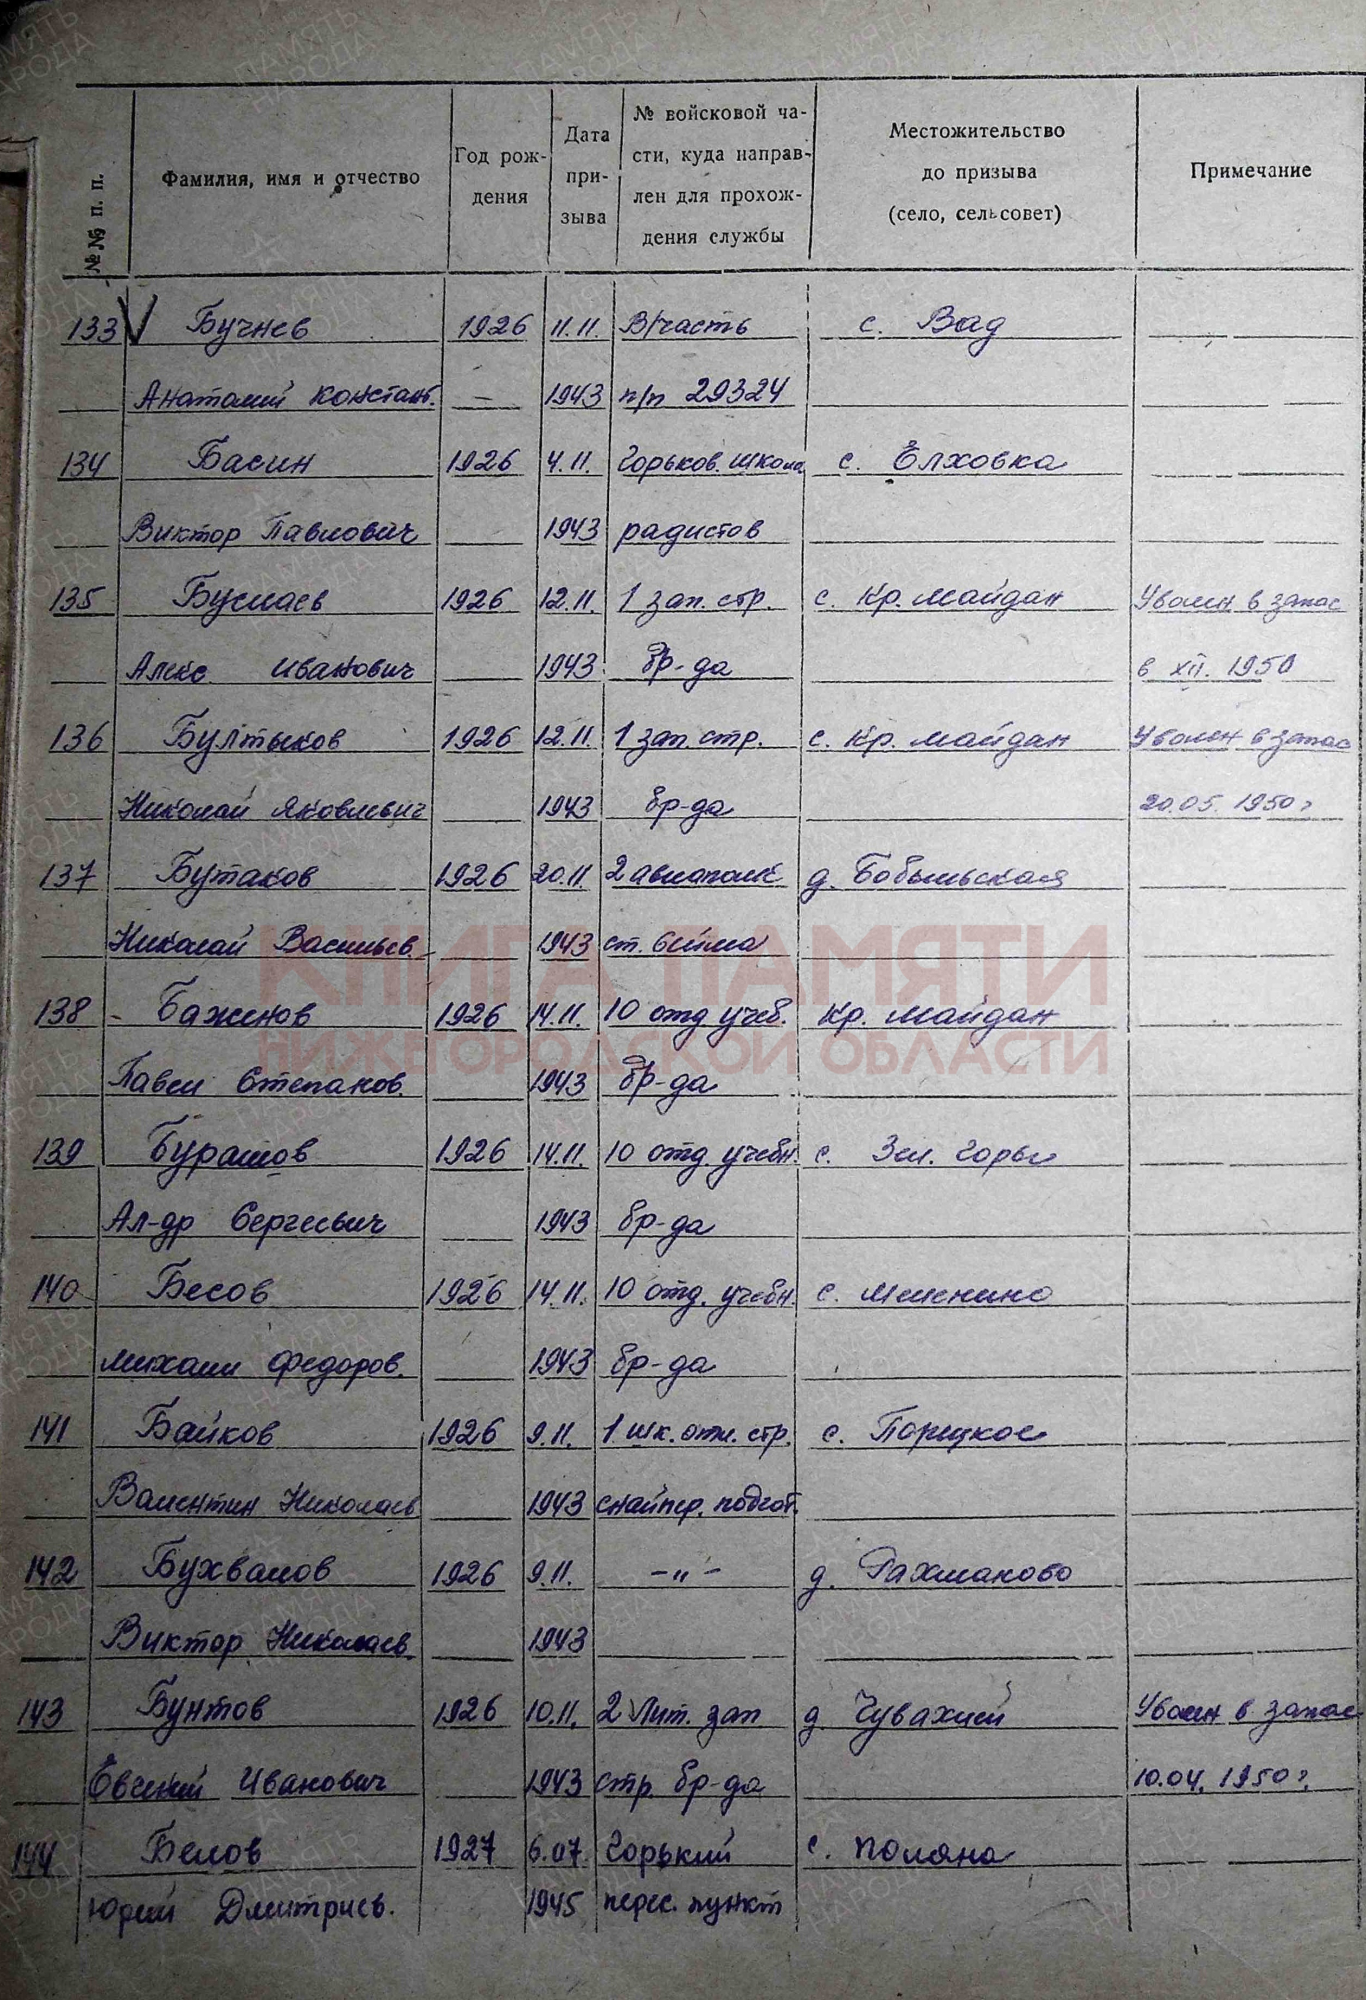 №№ п. п.
Фамилия, имя и отчество
Год рож-
дения
Дата
при-
зыва
№ войсковой ча-
сти, куда направ-
лен для прохож-
дения службы
Местожительство
до призыва
(село, сельсовет)
Примечание
133 V Бучнев 1926 11.11. В/часть с. Вад
Анатолий Констант. — 1943 п/п 29324
134 Басин 1926 4.11. Горьков. школа с. Елховка
Виктор Павлович 1943 радистов
135 Буслаев 1926 12.11. 1 зап. стр. с. Кр. Майдан Уволен в запас
Алекс. Иванович 1943 бр-да в XII. 1950
136 Булtыков 1926 12.11. 1 зап. стр. с. Кр. Майдан Уволен в запас
Николай Яковлевич 1943 бр-да 20.05. 1950 г
137 Бутаков 1926 20.11. 2 авиополк д. Бобыльская
Николай Васильев. 1943 ст. Сейма
КНИГА ПАМЯТИ
НИЖЕГОРОДСКОЙ ОБЛАСТИ
138 Баженов 1926 14.11. 10 отд учеб. Кр. Майдан
Павел Степанов. 1943 бр-да
139 Бурашов 1926 14.11. 10 отд. учебн. с. Зел. Горы
Ал-др Сергеевич 1943 бр-да
140 Бесов 1926 14.11. 10 отд. учебн. с.
Михаил Федоров. 1943 бр-да
141 Байков 1926 9.11. 1 шк. отл. стр. с. Порецкое
Валентин Николаев 1943 снайпер. подгот.
142 Бухвалов 1926 9.11. -"- д. Рахманово
Виктор Николаев. 1943
143 Бунтов 1926 10.11. 2 Лит. зап д Чувахлей Уволен в запас
Евгений Иванович 1943 стр. бр-да 10.04. 1950 г.
144 Белов 1927 6.07. Горький с. Поляна
Юрий Дмитриев. 1945 перес. пункт